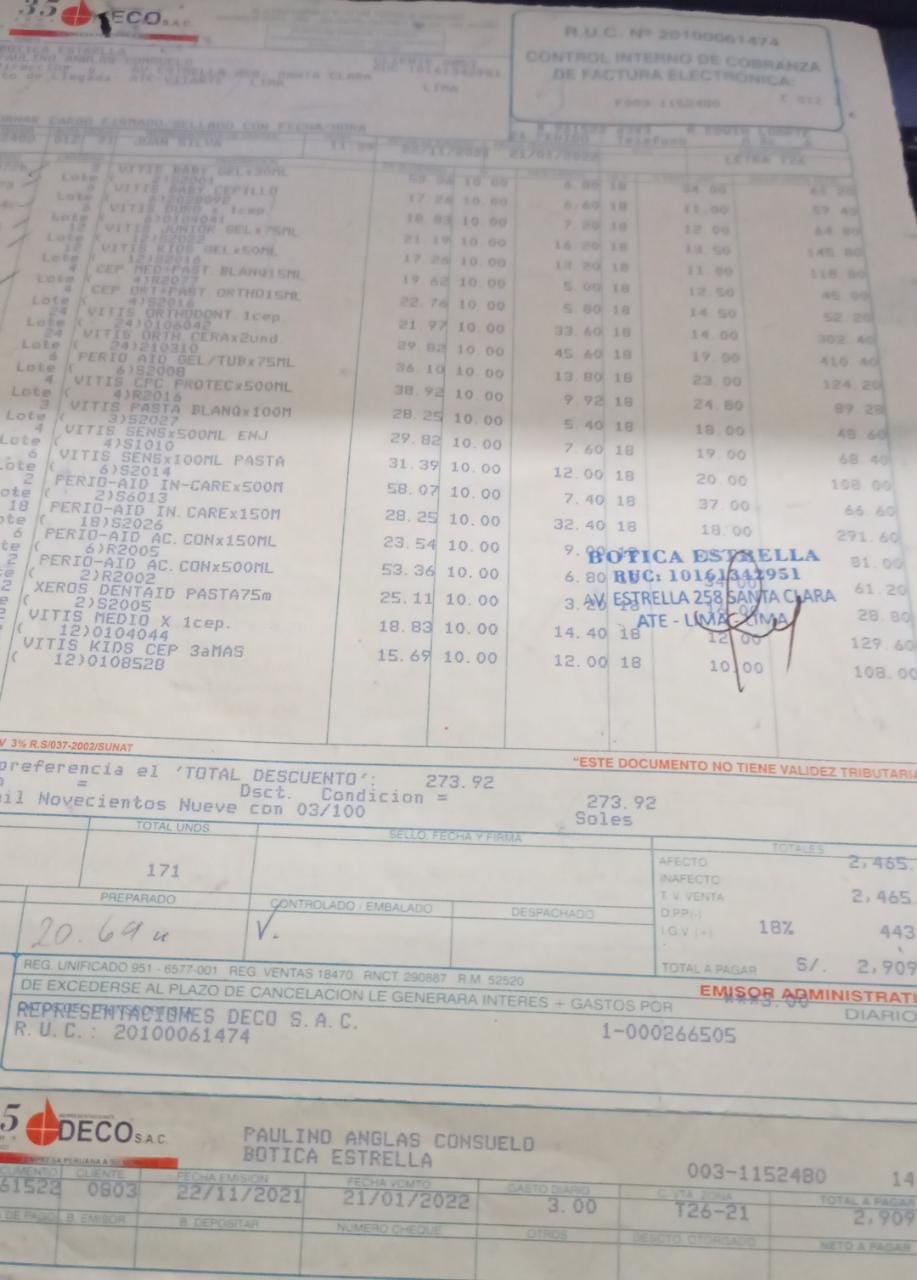 35 DECO S.A.C.
R.U.C. Nº 20100061474
CONTROL INTERNO DE COBRANZA
DE FACTURA ELECTRÓNICA:
F003-1152480
BOTICA ESTRELLA
PAULINO ANGLAS CONSUELO
SANTA CLARA
LIMA
LIMA
CARGO FIRMADO/SELLADO CON FECHA/HORA
012 JUAN SILVA 22/11/2021 21/01/2022 LETRA
VITIS BABY GEL×30ML 10.00 18 61.20
Lote
VITIS BABY CEPILLO 17.26 10.00 6.60 18 11.00 59.40
Lote
VITIS 1cep 18.83 10.00 7.20 18 12.00 64.80
Lote
12 VITIS JUNIOR GEL×75ML 21.19 10.00 16.20 18 13.50 145.80
Lote ( 12)S2022
12 VITIS KIDS GEL×50ML 17.26 10.00 13.20 18 11.00 118.80
Lote ( 12)S2016
4 CEP MED+PAST BLANQ15ML 19.62 10.00 5.00 18 12.50 45.00
Lote ( 4)R2077
4 CEP ORT+PAST ORTHO15ML 22.76 10.00 5.80 18 14.50 52.20
Lote ( 4)S2016
24 VITIS ORTHODONT 1cep. 21.97 10.00 33.60 18 14.00 302.40
Lote ( 24)0106042
24 VITIS ORTH CERA×2und 29.82 10.00 45.60 18 19.00 410.40
Lote ( 24)210310
6 PERIO AID GEL/TUB×75ML 36.10 10.00 13.80 18 23.00 124.20
Lote ( 6)S2008
4 VITIS CPC PROTEC×500ML 38.92 10.00 9.92 18 24.80 89.28
Lote ( 4)R2016
3 VITIS PASTA BLANQ×100M 28.25 10.00 5.40 18 18.00 48.60
Lote ( 3)S2027
4 VITIS SENS×500ML ENJ 29.82 10.00 7.60 18 19.00 68.40
Lote ( 4)S1010
6 VITIS SENS×100ML PASTA 31.39 10.00 12.00 18 20.00 108.00
Lote ( 6)S2014
2 PERIO-AID IN-CARE×500M 58.07 10.00 7.40 18 37.00 66.60
ote ( 2)S6013
18 PERIO-AID IN.CARE×150M 28.25 10.00 32.40 18 18.00 291.60
ote ( 18)S2026
6 PERIO-AID AC.CON×150ML 23.54 10.00 81.00
te ( 6)R2005
2 PERIO-AID AC.CON×500ML 53.36 10.00 6.80 61.20
( 2)R2002
XEROS DENTAID PASTA75m 25.11 10.00 3.20 18 28.80
( 2)S2005
VITIS MEDIO X 1cep. 18.83 10.00 14.40 18 12.00 129.60
( 12)0104044
VITIS KIDS CEP 3aMAS 15.69 10.00 12.00 18 10.00 108.00
( 12)0108528
BOTICA ESTRELLA
RUC: 10161342951
AV. ESTRELLA 258 SANTA CLARA
ATE - LIMA - LIMA
V 3% R.S/037-2002/SUNAT
"ESTE DOCUMENTO NO TIENE VALIDEZ TRIBUTARI
preferencia el 'TOTAL DESCUENTO': 273.92
= Dsct. Condicion = 273.92
il Novecientos Nueve con 03/100 Soles
TOTAL UNDS SELLO, FECHA Y FIRMA TOTALES
171
AFECTO 2,465.
INAFECTO
T. V. VENTA 2,465
D.PP(-)
I.G.V (+) 18% 443
TOTAL A PAGAR S/. 2,909
PREPARADO CONTROLADO / EMBALADO DESPACHADO
REG. UNIFICADO 951 - 6577-001 REG. VENTAS 18470 RNCT 290887 R.M. 52520
DE EXCEDERSE AL PLAZO DE CANCELACION LE GENERARA INTERES + GASTOS POR
EMISOR ADMINISTRATI
DIARIO
REPRESENTACIONES DECO S.A.C.
R.U.C.: 20100061474 1-000266505
5 DECO S.A.C.
EMPRESA PERUANA A SU SERVICIO
PAULINO ANGLAS CONSUELO
BOTICA ESTRELLA
003-1152480 14
CUMENTO CLIENTE FECHA EMISION FECHA VCMTO GASTO DIARIO C. VTA. ZONA TOTAL A PAGAR
61522 0803 22/11/2021 21/01/2022 3.00 T26-21 2,909
A DE PAGO B. EMISOR B. DEPOSITAR NUMERO CHEQUE OTROS DESCTO. OTORGADO NETO A PAGAR